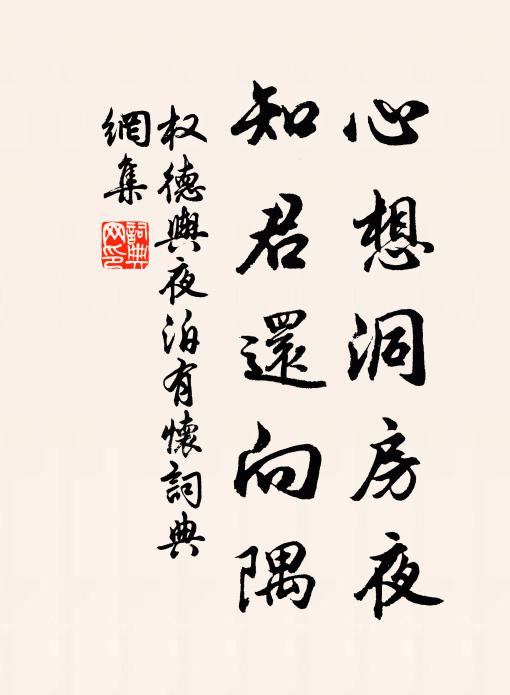 心想洞房夜
知君還向隅
权德輿夜泊有懷詞典
網集
詞典
网印